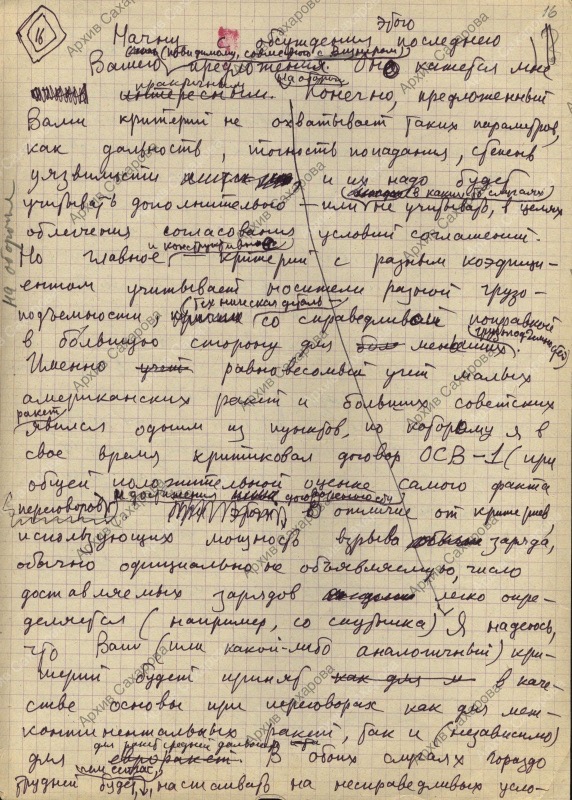 16
16
этого
Начну с обсуждения последнего
(повидимому, совместно с Винером)
Вашего предложения. Оно кажется мне
практичным
интересным. Конечно, предложенный
Вами критерий не охватывает таких параметров,
как дальность, точность попадания, степень
уязвимости и их надо будет
в каких-то случаях)
учитывать дополнительно – или не учитывать, в целях
облегчения согласования условий соглашений.
и конструктивное
Но главное критерий с разным коэффици-
ентом учитывает носители разной грузо-
подъемности, со справедливой поправкой
в бо́льшую сторону для меньших.
Именно равновесомый учет малых
американских ракет и больших советских
ракет
явился одним из пунктов, по которому я в
свое время критиковал договор ОСВ-1 (при
общей положительной оценке самого факта
переговоров и достижения договоренности)
В отличие от критериев,
использующих мощность взрыва заряда,
обычно официально не объявляемую, число
доставляемых зарядов легко опре-
деляется (например, со спутника) Я надеюсь,
что Ваш (или какой-либо аналогичный) кри-
терий будет принят как для м в каче-
стве основы при переговорах как для меж-
континентальных ракет, так и (независимо)
для ракет средней дальности
для евроракет. В обоих случаях гораздо
чем сейчас,
трудней будет, настаивать на несправедливых усло-
на обороте